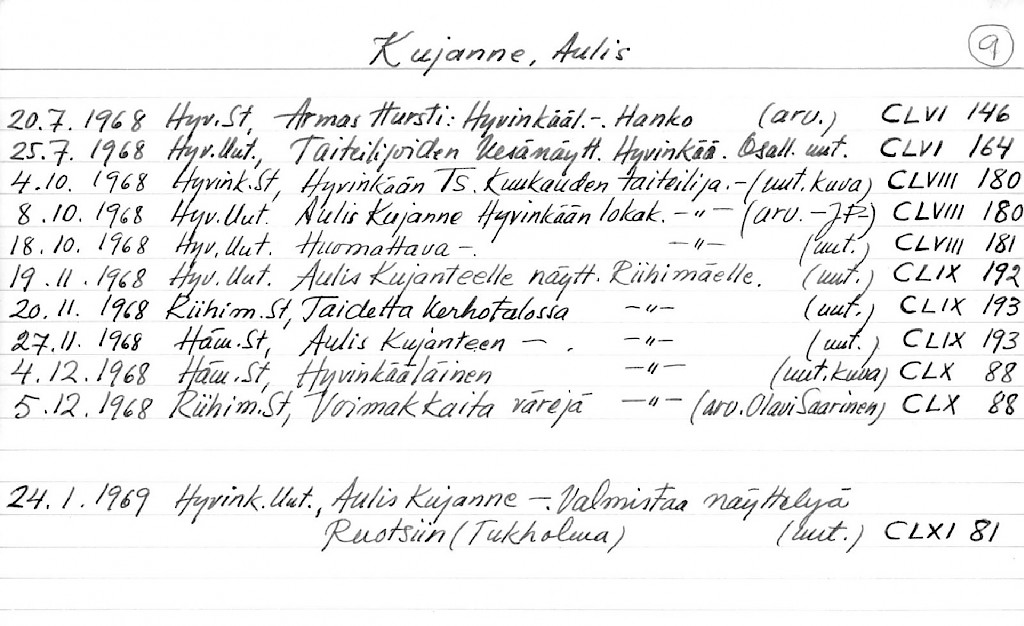 Kujanne, Aulis 9
20.7.1968 Hyv.St, Armas Hursti: Hyvinkääl.-. Hanko (arv.) CLVI 146
25.7.1968 Hyv.Uut., Taiteilijoiden Kesänäytt. Hyvinkää. Osall. uut. CLVI 164
4.10.1968 Hyvink.St, Hyvinkään Ts. Kuukauden taiteilija.-(uut.kuva) CLVIII 180
8.10.1968 Hyv.Uut. Aulis Kujanne Hyvinkään lokak. -"- (arv.-JP) CLVIII 180
18.10.1968 Hyv.Uut. Huomattava -. -"- (uut.) CLVIII 181
19.11.1968 Hyv.Uut. Aulis Kujanteelle näytt. Riihimäelle. (uut.) CLIX 192
20.11.1968 Riihim.St, Taidetta Kerhotalossa -"- (uut.) CLIX 193
27.11.1968 Häm.St, Aulis Kujanteen - . -"- (uut.) CLIX 193
4.12.1968 Häm.St, Hyvinkääläinen -"- (uut.kuva) CLX 88
5.12.1968 Riihim.St, Voimakkaita värejä -"- (arv.Olavi Saarinen) CLX 88
24.1.1969 Hyvink.Uut., Aulis Kujanne -. Valmistaa näyttelyä
Ruotsiin (Tukholma) (uut.) CLXI 81